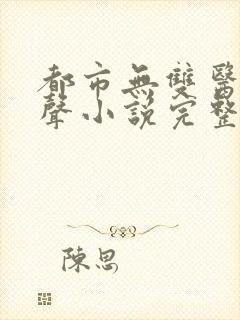 都市無雙醫
聲小說完整
陳思